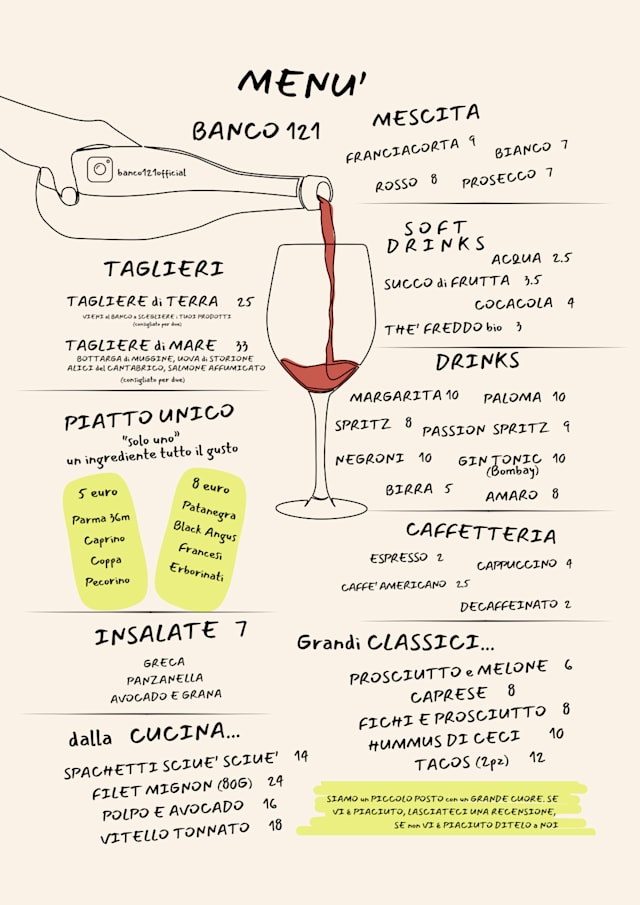 MENU'
BANCO 121
banco121official
TAGLIERI
TAGLIERE di TERRA 25
VIENI al BANCO e SCEGLIERE i TUOI PRODOTTI
(consigliato per due)
TAGLIERE di MARE 33
BOTTARGA di MUGGINE, UOVA di STORIONE
ALICI del CANTABRICO, SALMONE AFFUMICATO
(consigliato per due)
PIATTO UNICO
"solo uno"
un ingrediente tutto il gusto
5 euro
Parma 36m
Caprino
Coppa
Pecorino
8 euro
Patanegra
Black Angus
Francesi
Erborinati
INSALATE 7
GRECA
PANZANELLA
AVOCADO E GRANA
dalla CUCINA...
SPACHETTI SCIUE' SCIUE' 14
FILET MIGNON (80G) 24
POLPO E AVOCADO 16
VITELLO TONNATO 18
MESCITA
FRANCIACORTA 9
BIANCO 7
ROSSO 8
PROSECCO 7
SOFT
DRINKS
ACQUA 2.5
SUCCO di FRUTTA 3.5
COCACOLA 4
THE' FREDDO bio 3
DRINKS
MARGARITA 10
PALOMA 10
SPRITZ 8
PASSION SPRITZ 9
NEGRONI 10
GIN TONIC 10
(Bombay)
BIRRA 5
AMARO 8
CAFFETTERIA
ESPRESSO 2
CAPPUCCINO 4
CAFFE' AMERICANO 2.5
DECAFFEINATO 2
Grandi CLASSICI...
PROSCIUTTO e MELONE 6
CAPRESE 8
FICHI E PROSCIUTTO 8
HUMMUS DI CECI 10
TACOS (2pz) 12
SIAMO un PICCOLO POSTO con un GRANDE CUORE. SE
VI è PIACIUTO, LASCIATECI UNA RECENSIONE,
SE non VI è PIACIUTO DITELO a NOI